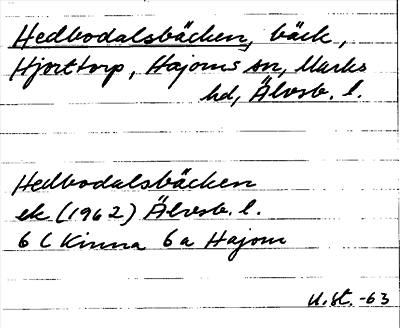 Hedbodalsbäcken, bäck,
Hjorttorp, Hajoms sn, Marks
hd, Älvsb. l.
Hedbodalsbäcken
ek (1962) Älvsb. l.
6 C Kinna 6 a Hajom
U.st. -63